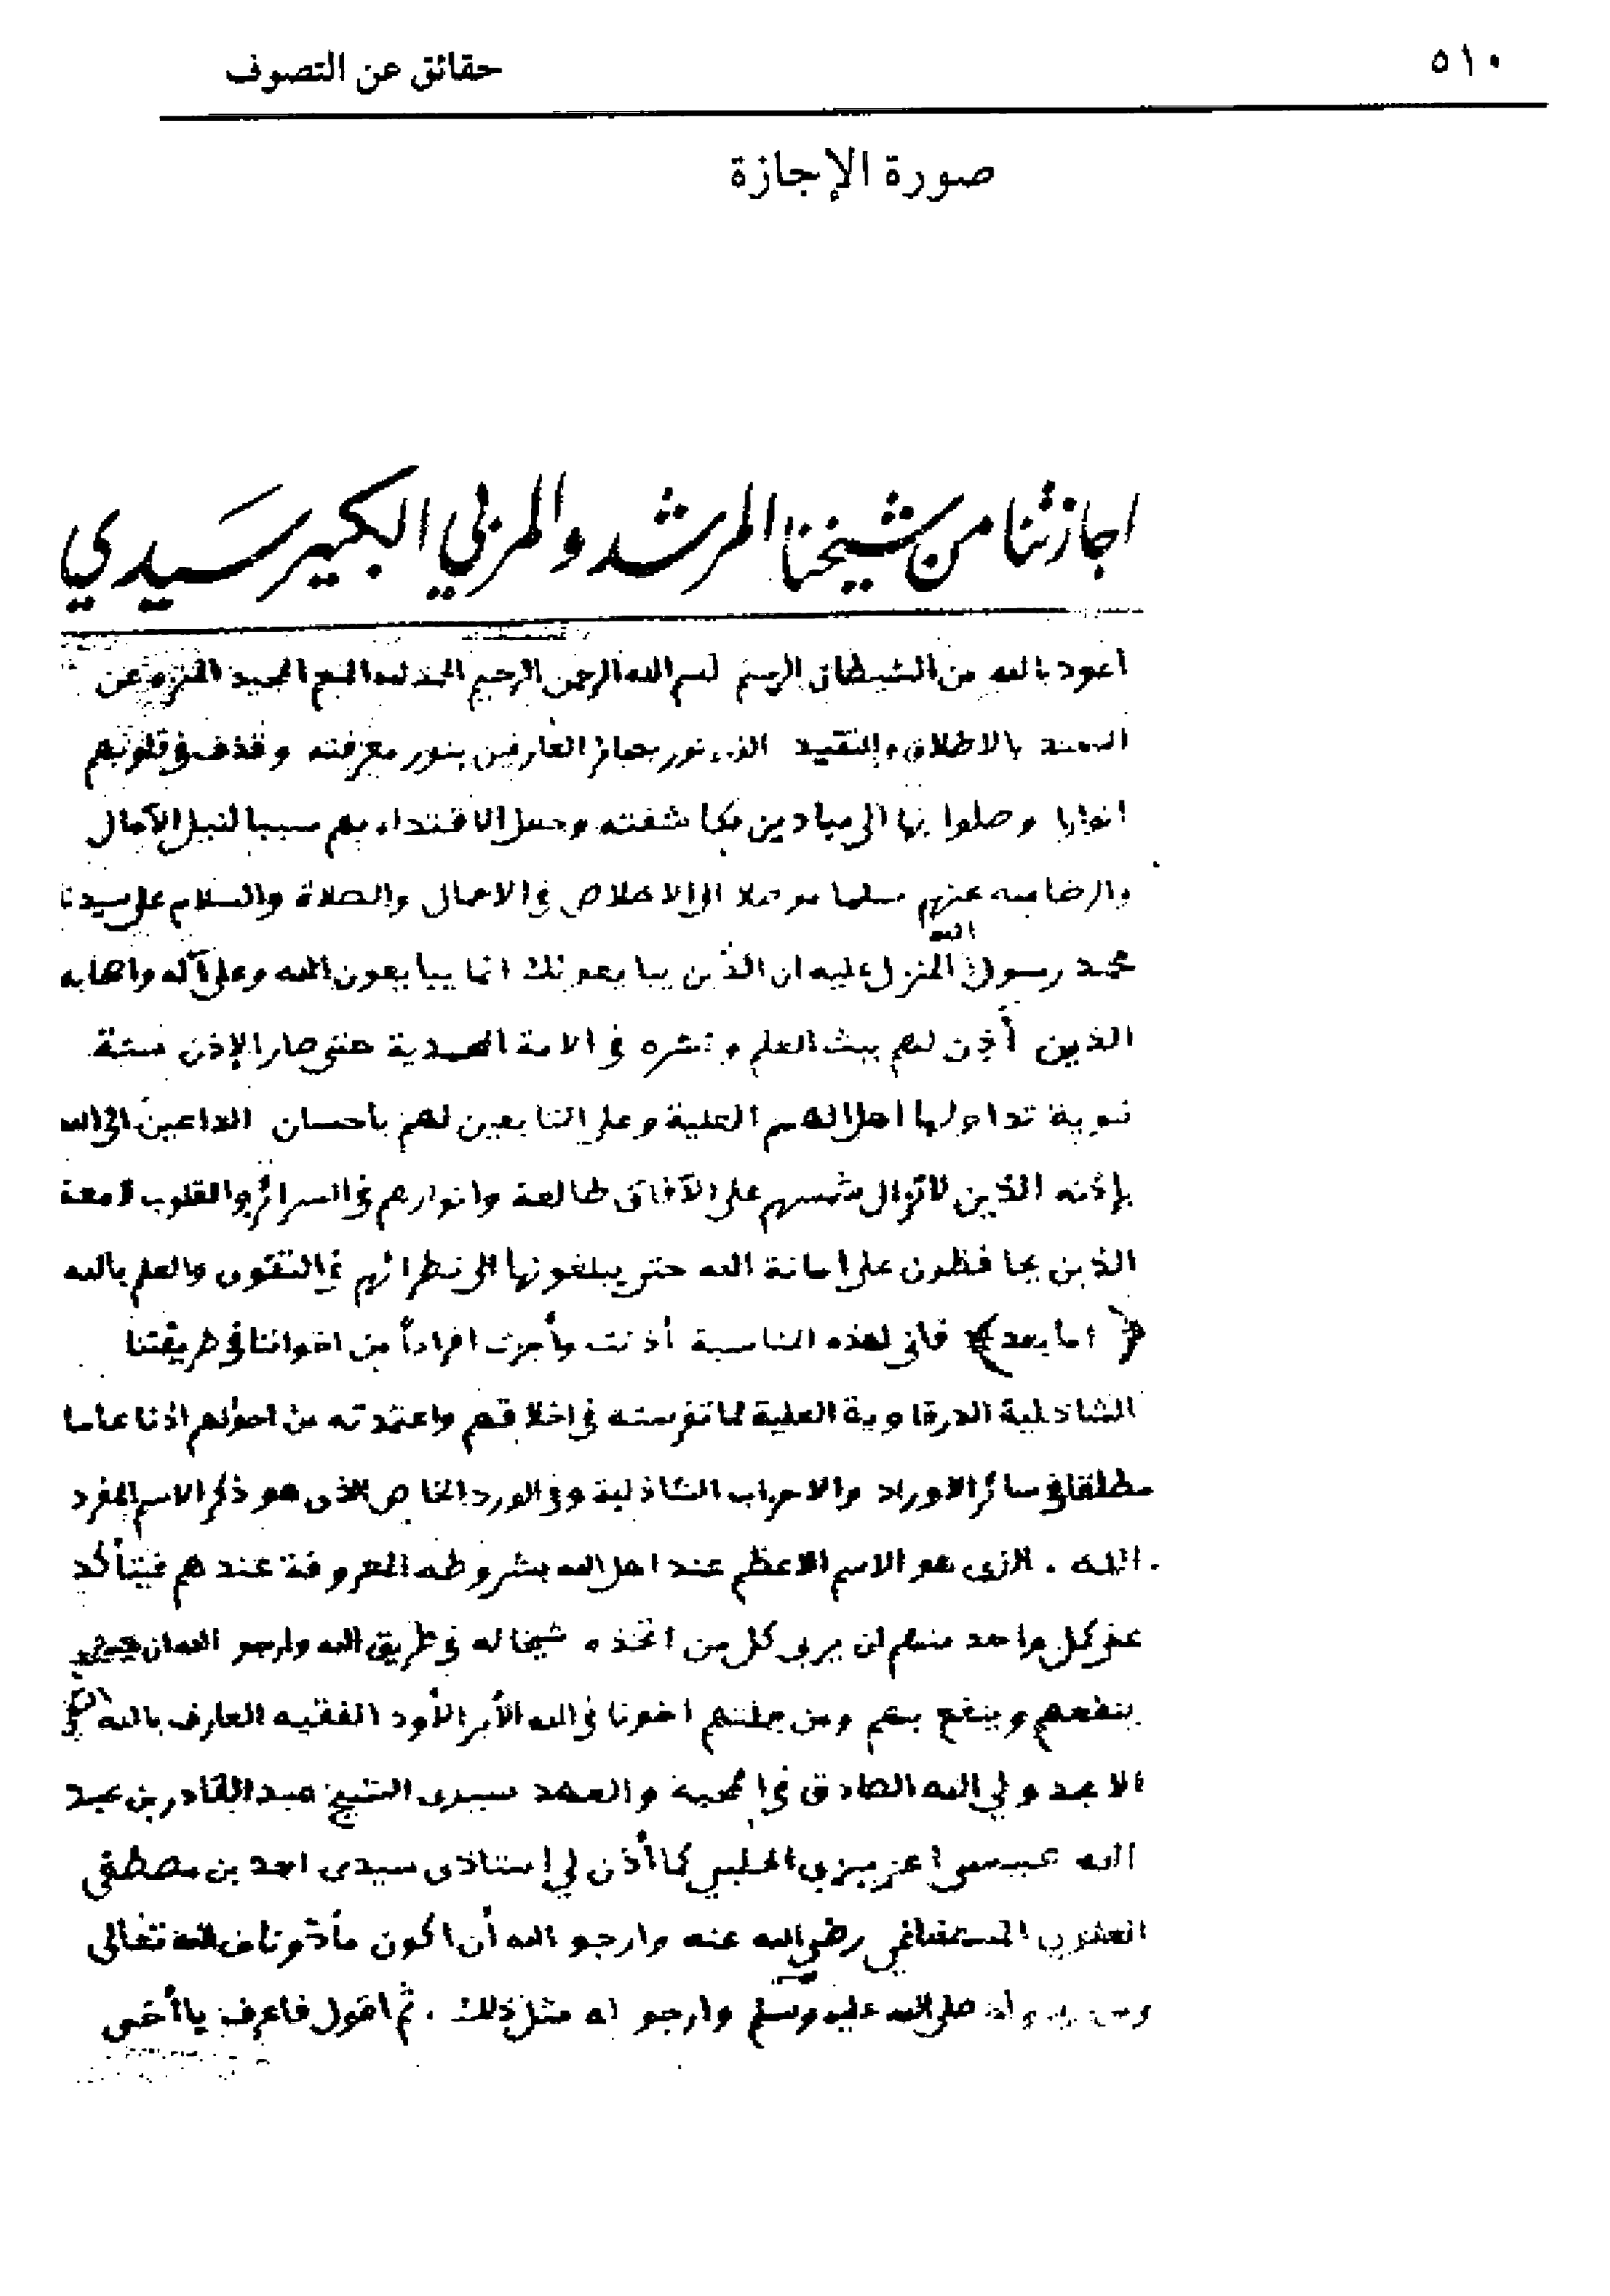 ٥١٠
حقائق عن التصوف
صورة الإجازة
اجازتنا من شيخنا المرشد والمربي الكبير سيدي
أعوذ بالله من الشيطان الرجيم بسم الله الرحمن الرحيم الحمد لله المجيد المنزه عن
بالاطلاق والتقييد الذي نور بصائر العارفين بنور معرفته وقذف في قلوبهم
انوارا وصلوا بها الى ميادين مكاشفته وجعل الاقتداء بهم سببا لنيل الآمال
والرضا منه عنهم سلما موصلا الى الاخلاص في الاعمال والصلاة والسلام على سيدنا
محمد رسول الله المنزل عليه ان الذين يبايعونك انما يبايعون الله وعلى آله واصحابه
الذين أذن لهم ببث العلم ونشره في الامة المحمدية حتى صار الإذن سنة
نبوية تداولها اهل الهمم العلية وعلى التابعين لهم باحسان الداعين الى الله
بإذنه الذين لاتزال شمسهم على الآفاق طالعة وانوارهم في السرائر والقلوب لامعة
الذين يحافظون على امانة الله حتى يبلغونها الى نظرائهم في التقوى والعلم بالله
﴿ اما بعد ﴾ فاني لهذه المناسبة أذنت وأجزت افراداً من اخواننا في طريقتنا
الشاذلية الدرقاوية العلية لما تفرسته في اخلاقهم واعتمدته من احوالهم اذنا عاما
مطلقا في سائر الاوراد والاحزاب الشاذلية وفي الورد الخاص الذي هو ذكر الاسم المفرد
. الله . الذي هو الاسم الاعظم عند اهل الله بشروطه المعروفة عندهم فيتأكد
على كل واحد منهم ان يربي كل من اتخذه شيخا له في طريق الله وارجو الله ان
ينفعهم وينفع بهم ومن جملتهم اخونا في الله الأبر الأود الفقيه العارف بالله
الامجد ولي الله الصادق في المحبة والعهد سيدي الشيخ عبد القادر بن عبد
الله عيسى عزيزي الحلبي كما أذن لي استاذي سيدي احمد بن مصطفى
العلوي المستغانمي رضي الله عنه وارجو الله أن اكون مأذونا من الله تعالى
ومن رسوله صلى الله عليه وسلم وارجو له مثل ذلك . ثم اقول فاعرف ياأخي